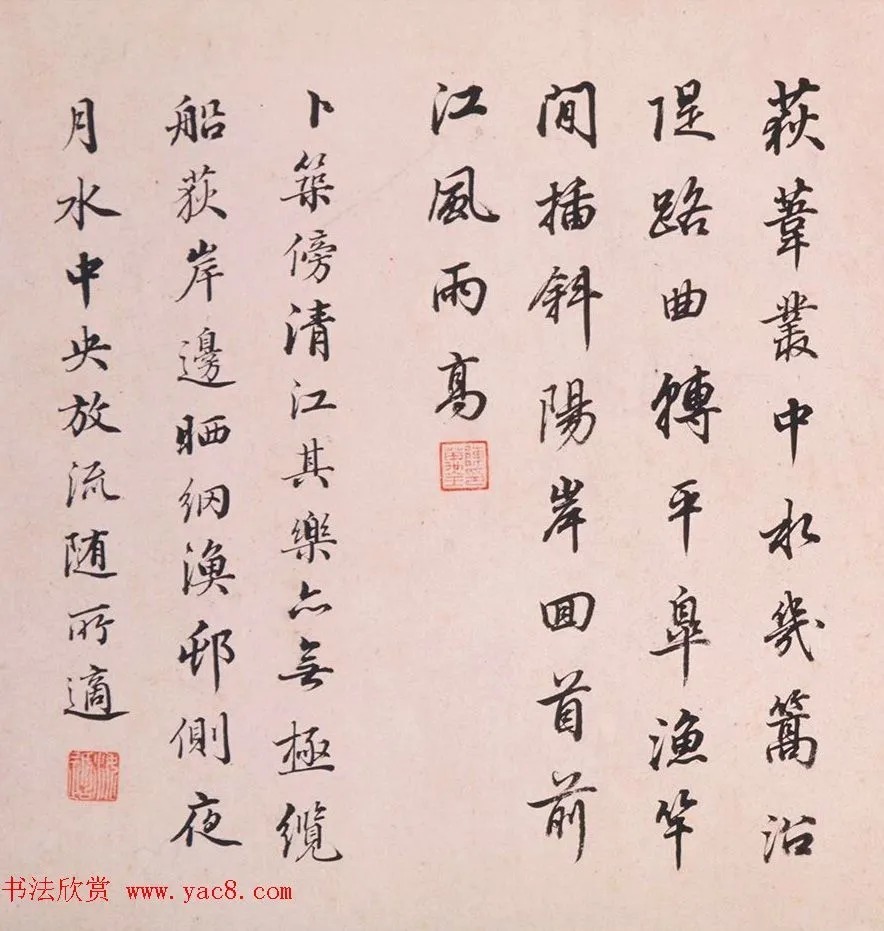 萩葦叢中水幾篙沿
隄路曲轉平皐漁竿
間插斜陽岸囬首前
江風雨高
卜築傍清江其樂亦無極纜
船荻岸邊晒網漁邨側夜
月水中央放流随所適
书法欣赏 www.yac8.com